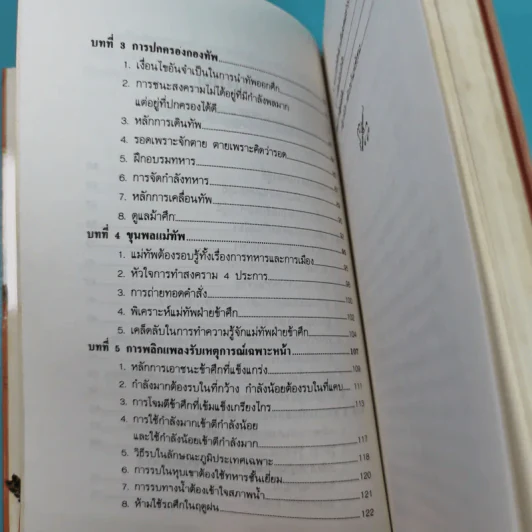 บทที่ 3 การปกครองกองทัพ
1. เงื่อนไขอันจำเป็นในการนำทัพออกศึก
2. การชนะสงครามไม่ได้อยู่ที่มีกำลังพลมาก
แต่อยู่ที่ปกครองได้ดี
3. หลักการเดินทัพ
4. รอดเพราะจักตาย ตายเพราะคิดว่ารอด
5. ฝึกอบรมทหาร
6. การจัดกำลังทหาร
7. หลักการเคลื่อนทัพ
8. ดูแลม้าศึก
บทที่ 4 ขุนพลแม่ทัพ
1. แม่ทัพต้องรอบรู้ทั้งเรื่องการทหารและการเมือง
2. หัวใจการทำสงคราม 4 ประการ
3. การถ่ายทอดคำสั่ง 100
4. พิเคราะห์แม่ทัพฝ่ายข้าศึก 102
5. เคล็ดลับในการทำความรู้จักแม่ทัพฝ่ายข้าศึก 104
บทที่ 5 การพลิกแพลงรับเหตุการณ์เฉพาะหน้า 107
1. หลักการเอาชนะข้าศึกที่แข็งแกร่ง 109
2. กำลังมากต้องรบในที่กว้าง กำลังน้อยต้องรบในที่แคบ 111
3. การโจมตีข้าศึกที่เข้มแข็งเกรียงไกร 113
4. การใช้กำลังมากเข้าตีกำลังน้อย
และใช้กำลังน้อยเข้าตีกำลังมาก 117
5. วิธีรบในลักษณะภูมิประเทศเฉพาะ 118
6. การรบในหุบเขาต้องใช้ทหารชั้นเยี่ยม 120
7. การรบทางน้ำต้องเข้าใจสภาพน้ำ 121
8. ห้ามใช้รถศึกในฤดูฝน 122